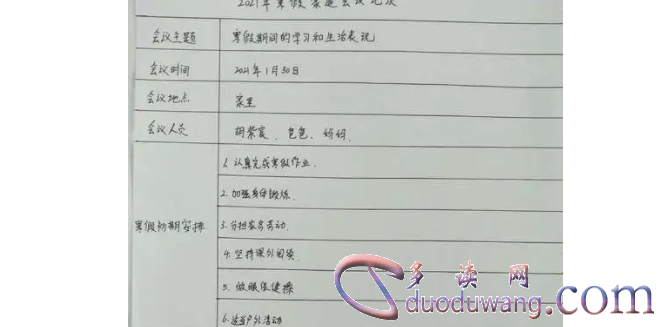 2021年寒假家庭会议记录
会议主题 寒假期间的学习和生活表现
会议时间 2021年1月30日
会议地点 家里
会议人员 胡紫宸、爸爸、妈妈
寒假初期安排
1.认真完成寒假作业.
2.加强身体锻炼.
3.分担家务劳动.
4.坚持课外阅读.
5.做眼保健操
6.适当户外活动
多读网
duoduwang.com